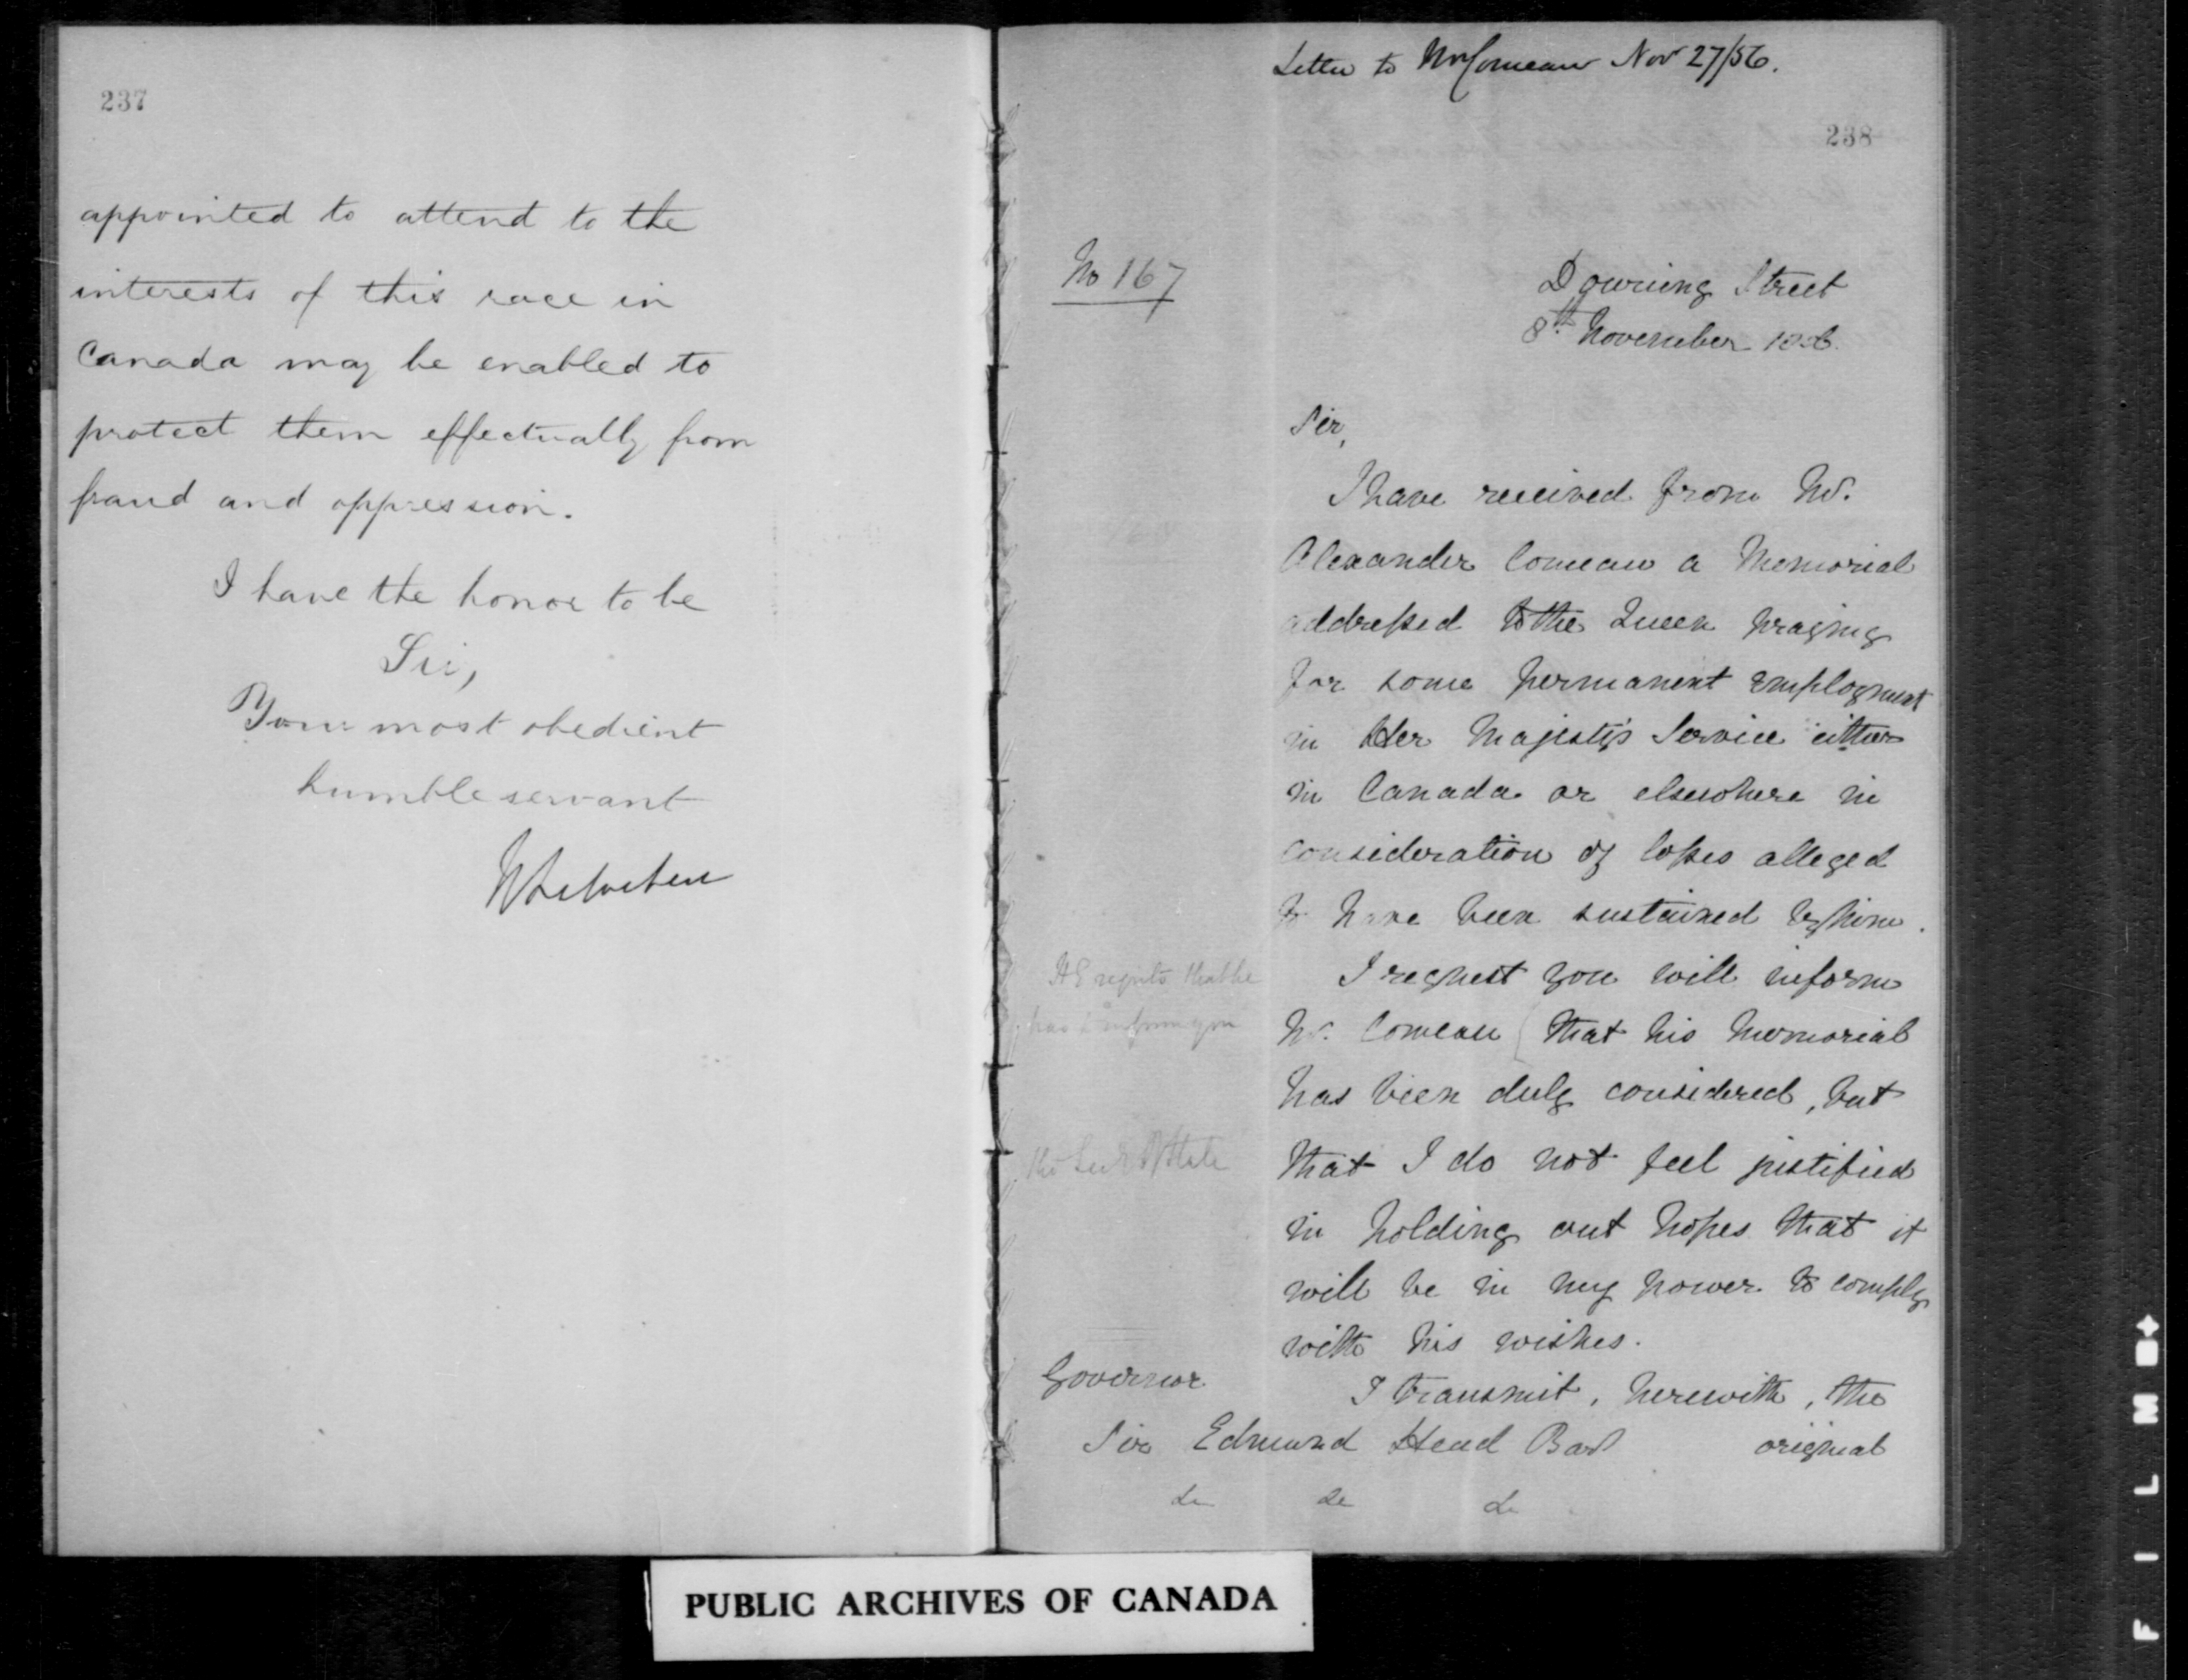 237
appointed to attend to the
interests of this race in
Canada may be enabled to
protect them effectually from
fraud and oppression.
I have the honor to be
Sir,
Your most obedient
humble servant
Letter to Mr Comeau Nov 27/56.
238
No 167
Downing Street
8th November 1856.
Sir,
I have received from Mr.
Alexander Comeau a Memorial
addressed to the Queen praying
for some permanent employment
in Her Majesty's Service either
in Canada or elsewhere in
consideration of losses alleged
to have been sustained by him.
I request you will inform
Mr. Comeau that his Memorial
has been duly considered, but
that I do not feel justified
in holding out hopes that it
will be in my power to comply
with his wishes.
I transmit, herewith, the
original
HE regrets that he
has to inform you
the Sec of State
Governor
Sir Edmund Head Bart
&c &c &c
PUBLIC ARCHIVES OF CANADA
FILMED